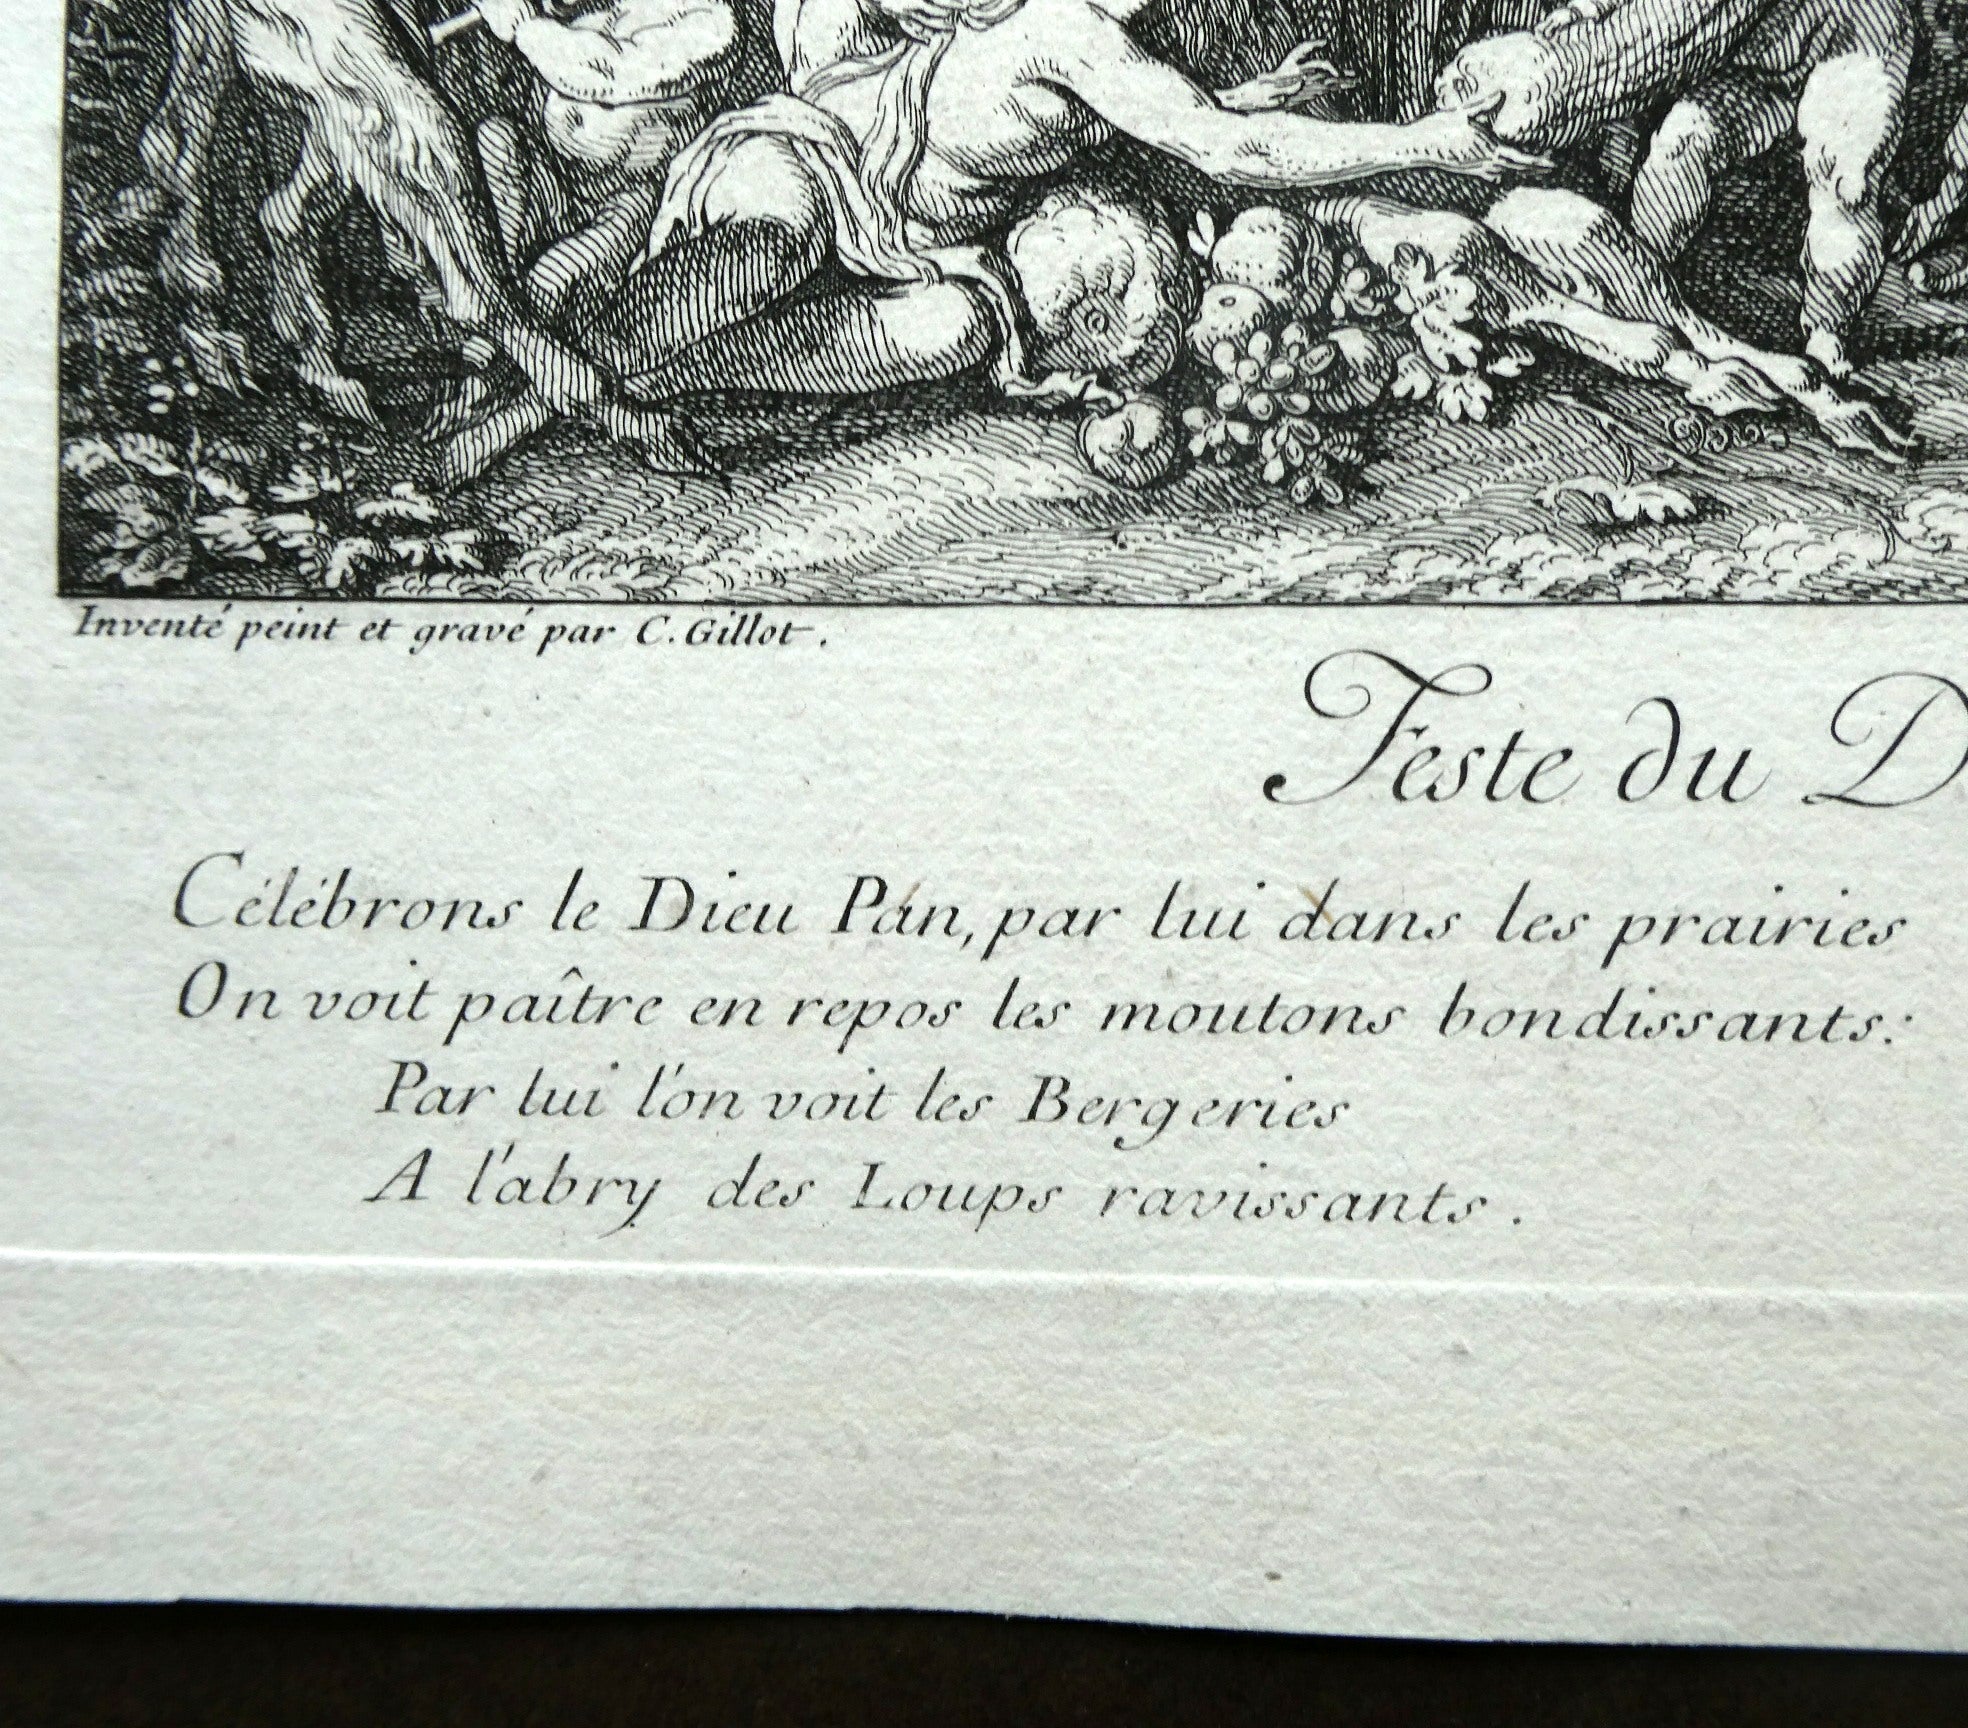 Inventé peint et gravé par C. Gillot.
Feste du D
Célébrons le Dieu Pan, par lui dans les prairies
On voit paître en repos les moutons bondissants:
Par lui l'on voit les Bergeries
A l'abry des Loups ravissants.